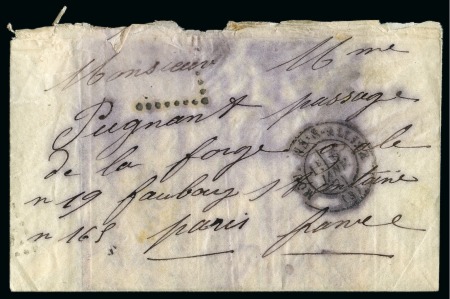 Monsieur Mme
Pugnant passage
de la forge
n 19 faubourg s
n 165 paris france